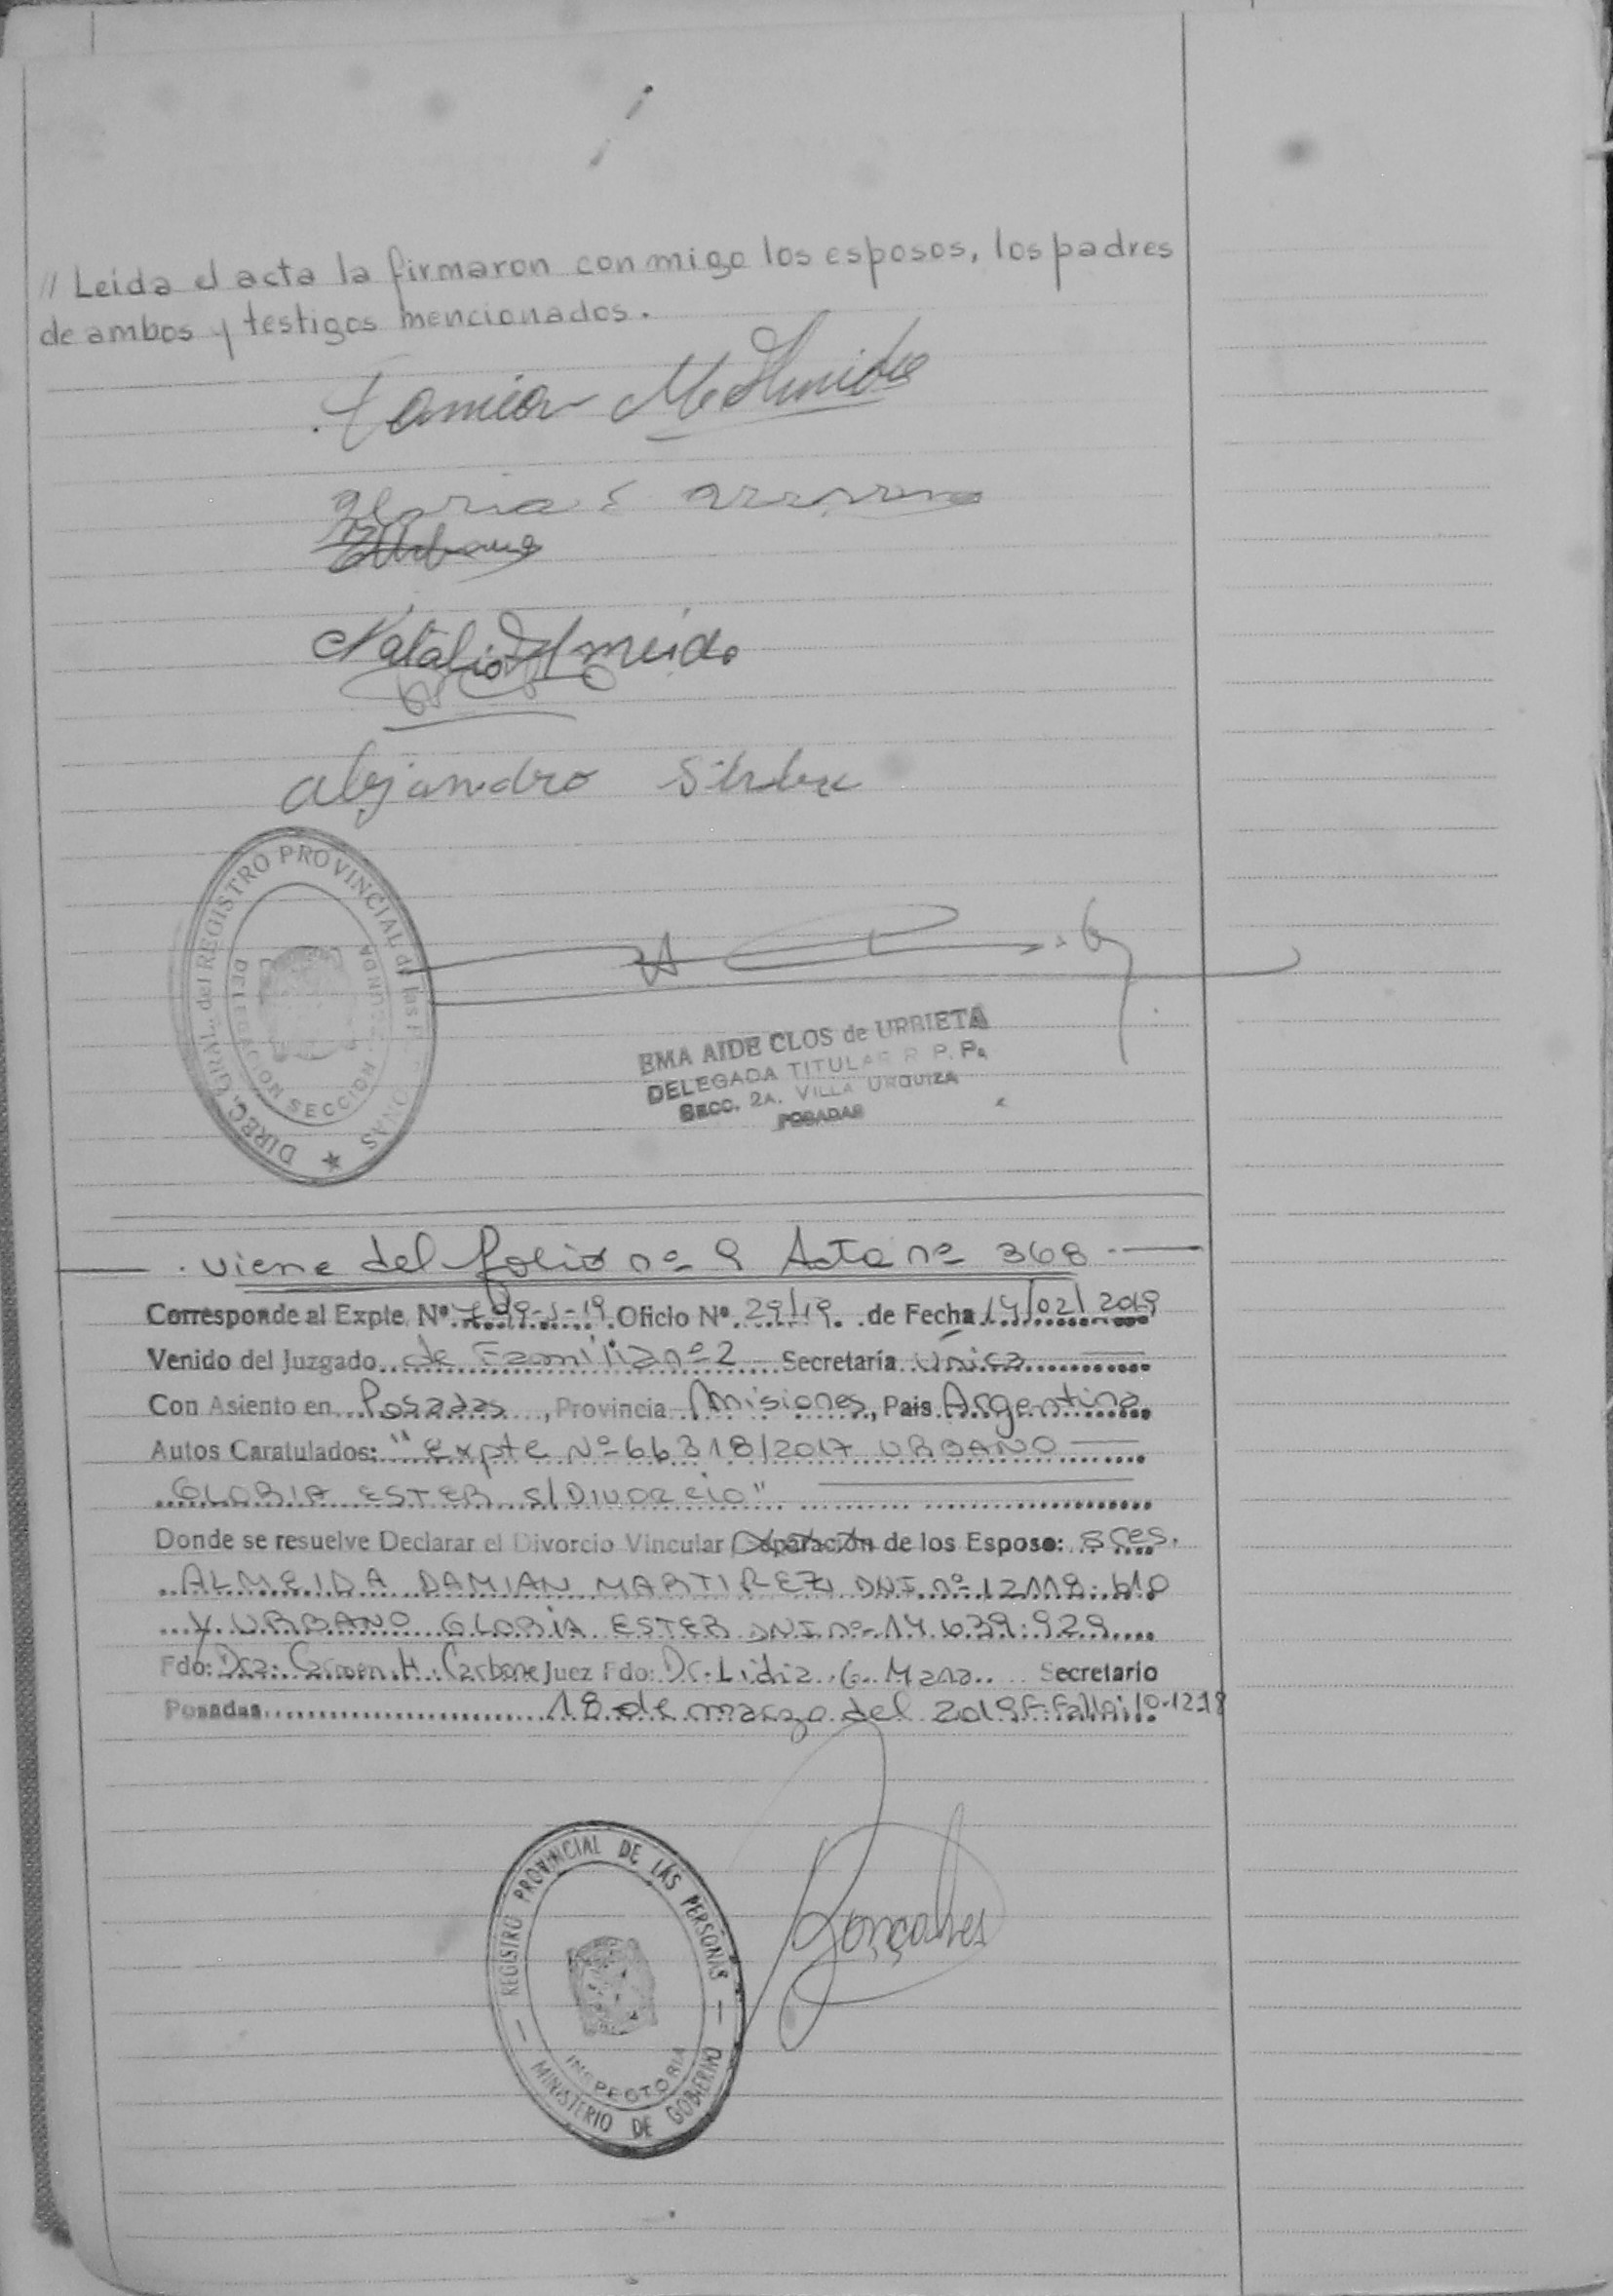 // Leida el acta la firmaron conmigo los esposos, los padres
de ambos y testigos mencionados.
Damian M Almeida
Gloria E
Urbano
Natalio Almeida
Alejandro
DIREC. GRAL. del REGISTRO PROVINCIAL de las PERSONAS
DELEGACION SECCION SEGUNDA
EMA AIDE CLOS de URRIETA
DELEGADA TITULAR R. P. P.
SECC. 2A. VILLA URQUIZA
POSADAS
viene del folio nº 9 Acta nº 368
Corresponde al Expte. Nº 799-J-19 Oficio Nº 29/19 de Fecha 14/02/2019
Venido del Juzgado de Familia nº 2 Secretaría Unica
Con Asiento en Posadas, Provincia Misiones, País Argentina
Autos Caratulados: "Expte Nº 66318/2017 URBANO
GLORIA ESTER S/DIVORCIO"
Donde se resuelve Declarar el Divorcio Vincular Separación de los Esposo: sres.
ALMEIDA DAMIAN MARTIREZ DNI nº 12.118.610
Y URBANO GLORIA ESTER DNI nº 14.639.929
Fdo: Dra. Carmen H. Carbone Juez Fdo: Dr. Lidia G. Mana Secretario
Posadas 18 de marzo del 2019 F. Fallo: 10-12-18
REGISTRO PROVINCIAL DE LAS PERSONAS
INSPECTORIA
MINISTERIO DE GOBIERNO
Gonçalves